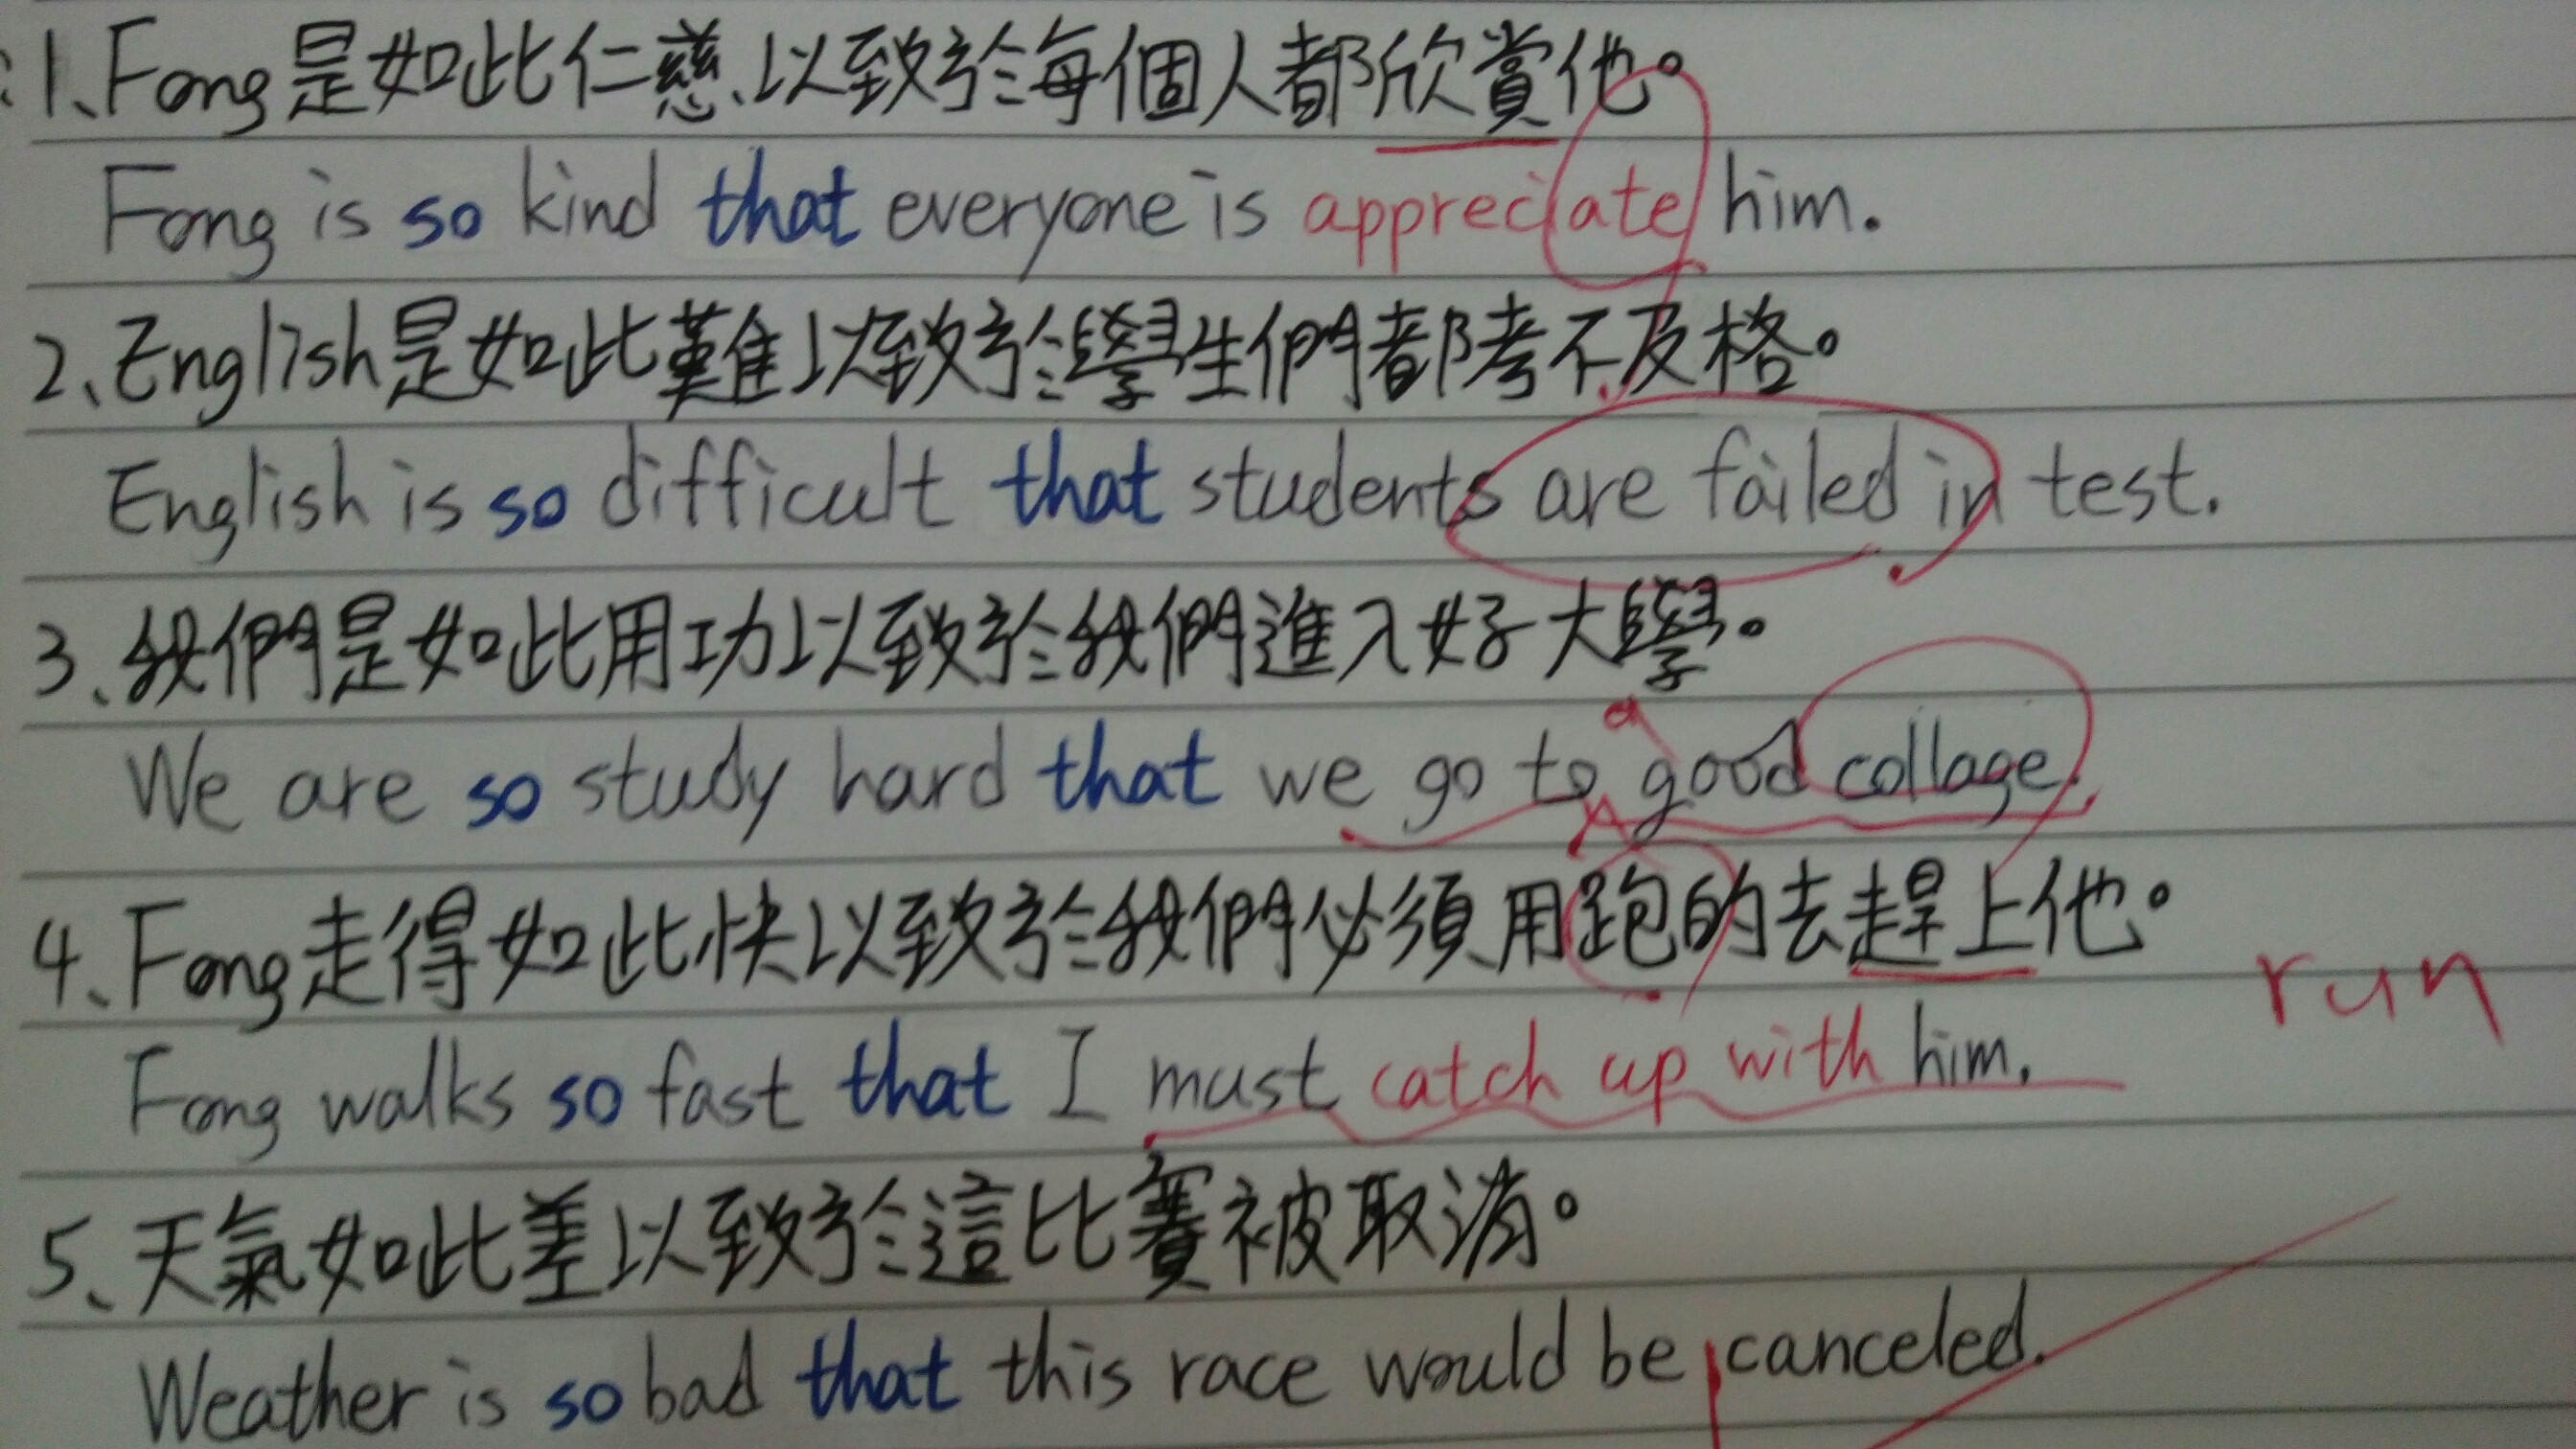 1、Fong是如此仁慈、以致於每個人都欣賞他。
Fong is so kind that everyone is appreciate him.
2、English是如此難以致於學生們都考不及格。
English is so difficult that students are failed in test.
3、我們是如此用功以致於我們進入好大學。
a
We are so study hard that we go to good collage.
4、Fong走得如此快以致於我們必須用跑的去趕上他。
run
Fong walks so fast that I must catch up with him.
5、天氣如此差以致於這比賽被取消。
Weather is so bad that this race would be canceled.